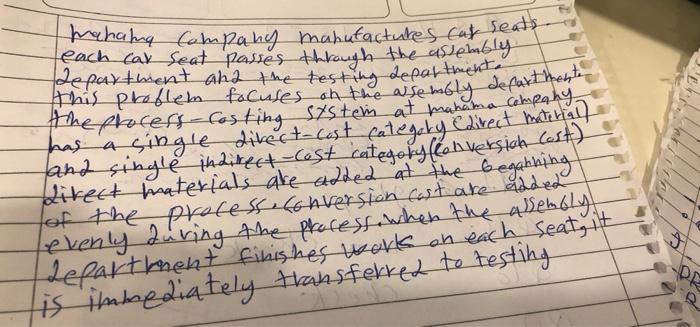 mahama Company manufactures car seats.
each car seat passes through the assembly
department and the testing department.
this problem focuses on the assembly department.
the process-costing system at mahama company
has a single direct-cost category (direct material)
and single indirect-cost category (conversion cost)
direct materials are added at the beganning
of the process. conversion cost are added
evenly during the process. when the assembly
department finishes work on each seat, it
is immediately transferred to testing